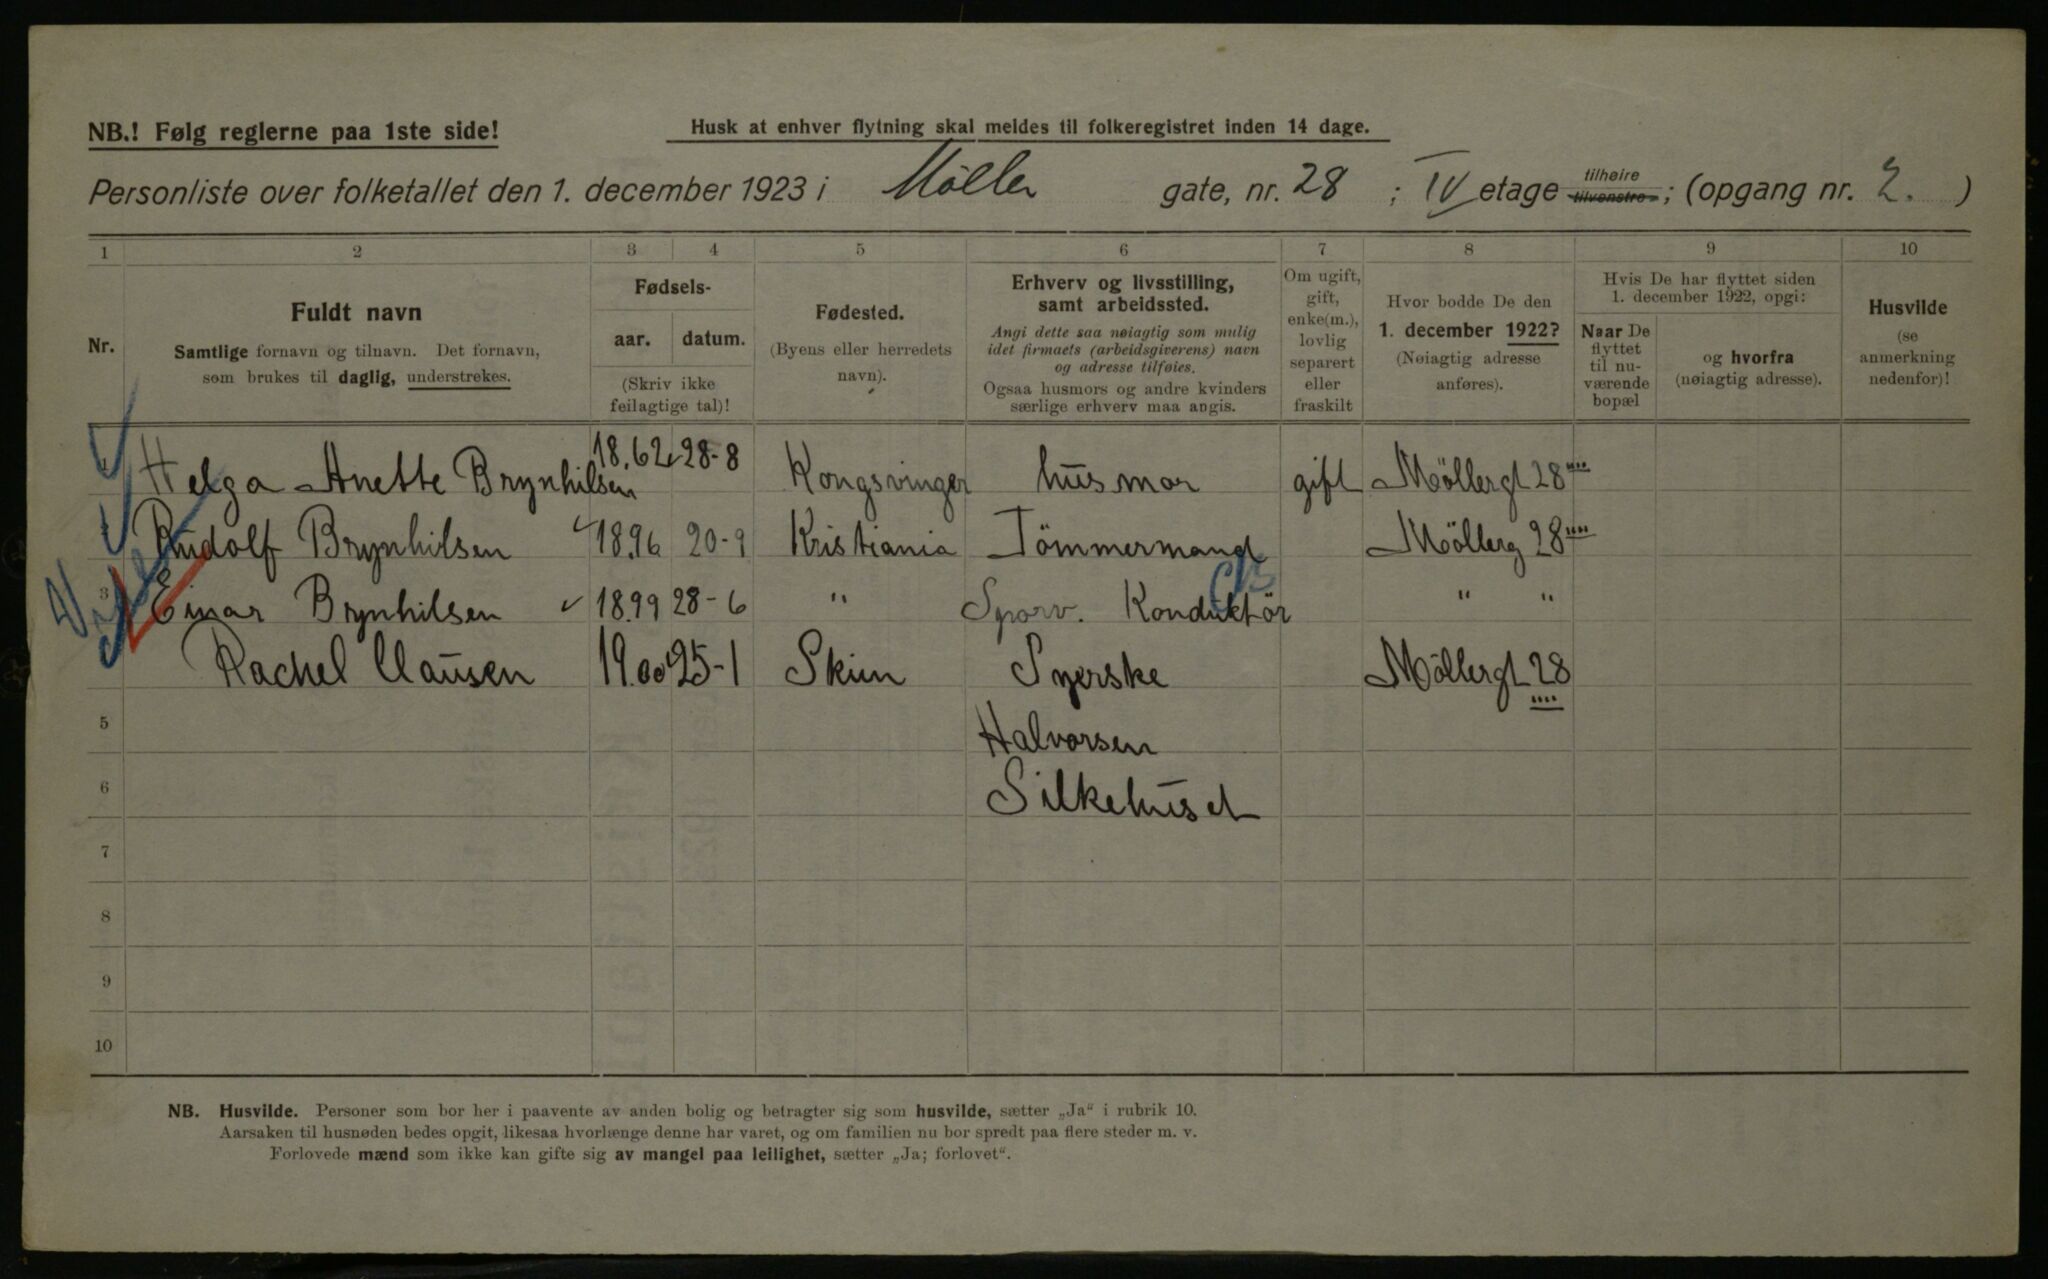 NB.! Følg reglerne paa 1ste side!
Husk at enhver flytning skal meldes til folkeregistret inden 14 dage.
Personliste over folketallet den 1. december 1923 i Møller gate, nr. 28 ; IV etage tilhøire tilvenstre ; (opgang nr. 2. )
1 2 3 4 5 6 7 8 9 10
Nr.
Fuldt navn
Samtlige fornavn og tilnavn. Det fornavn,
som brukes til daglig, understrekes.
Fødsels-
aar. datum.
(Skriv ikke
feilagtige tal)!
Fødested.
(Byens eller herredets
navn).
Erhverv og livsstilling,
samt arbeidssted.
Angi dette saa nøiagtig som mulig
idet firmaets (arbeidsgiverens) navn
og adresse tilføies.
Ogsaa husmors og andre kvinders
særlige erhverv maa angis.
Om ugift,
gift,
enke(m.),
lovlig
separert
eller
fraskilt
Hvor bodde De den
1. december 1922?
(Nøiagtig adresse
anføres).
Hvis De har flyttet siden
1. december 1922, opgi:
Naar De
flyttet
til nu-
værende
bopæl
og hvorfra
(nøiagtig adresse).
Husvilde
(se
anmerkning
nedenfor)!
Helga Anette Brynhilsen 18.62 28-8 Kongsvinger husmor gift Möllergt 28
Rudolf Brynhilsen 18.96 20-9 Kristiania Tömmermand Möllerg 28
3 Einar Brynhilsen 18.99 28-6 " Sporv. Konduktör " "
Rachel Clausen 19.00 25-1 Skien Syerske Möllergt 28
5 Halvorsen
6 Silkehuset
7
8
9
10
NB. Husvilde. Personer som bor her i paavente av anden bolig og betragter sig som husvilde, sætter „Ja“ i rubrik 10.
Aarsaken til husnøden bedes opgit, likesaa hvorlænge denne har varet, og om familien nu bor spredt paa flere steder m. v.
Forlovede mænd som ikke kan gifte sig av mangel paa leilighet, sætter „Ja; forlovet“.